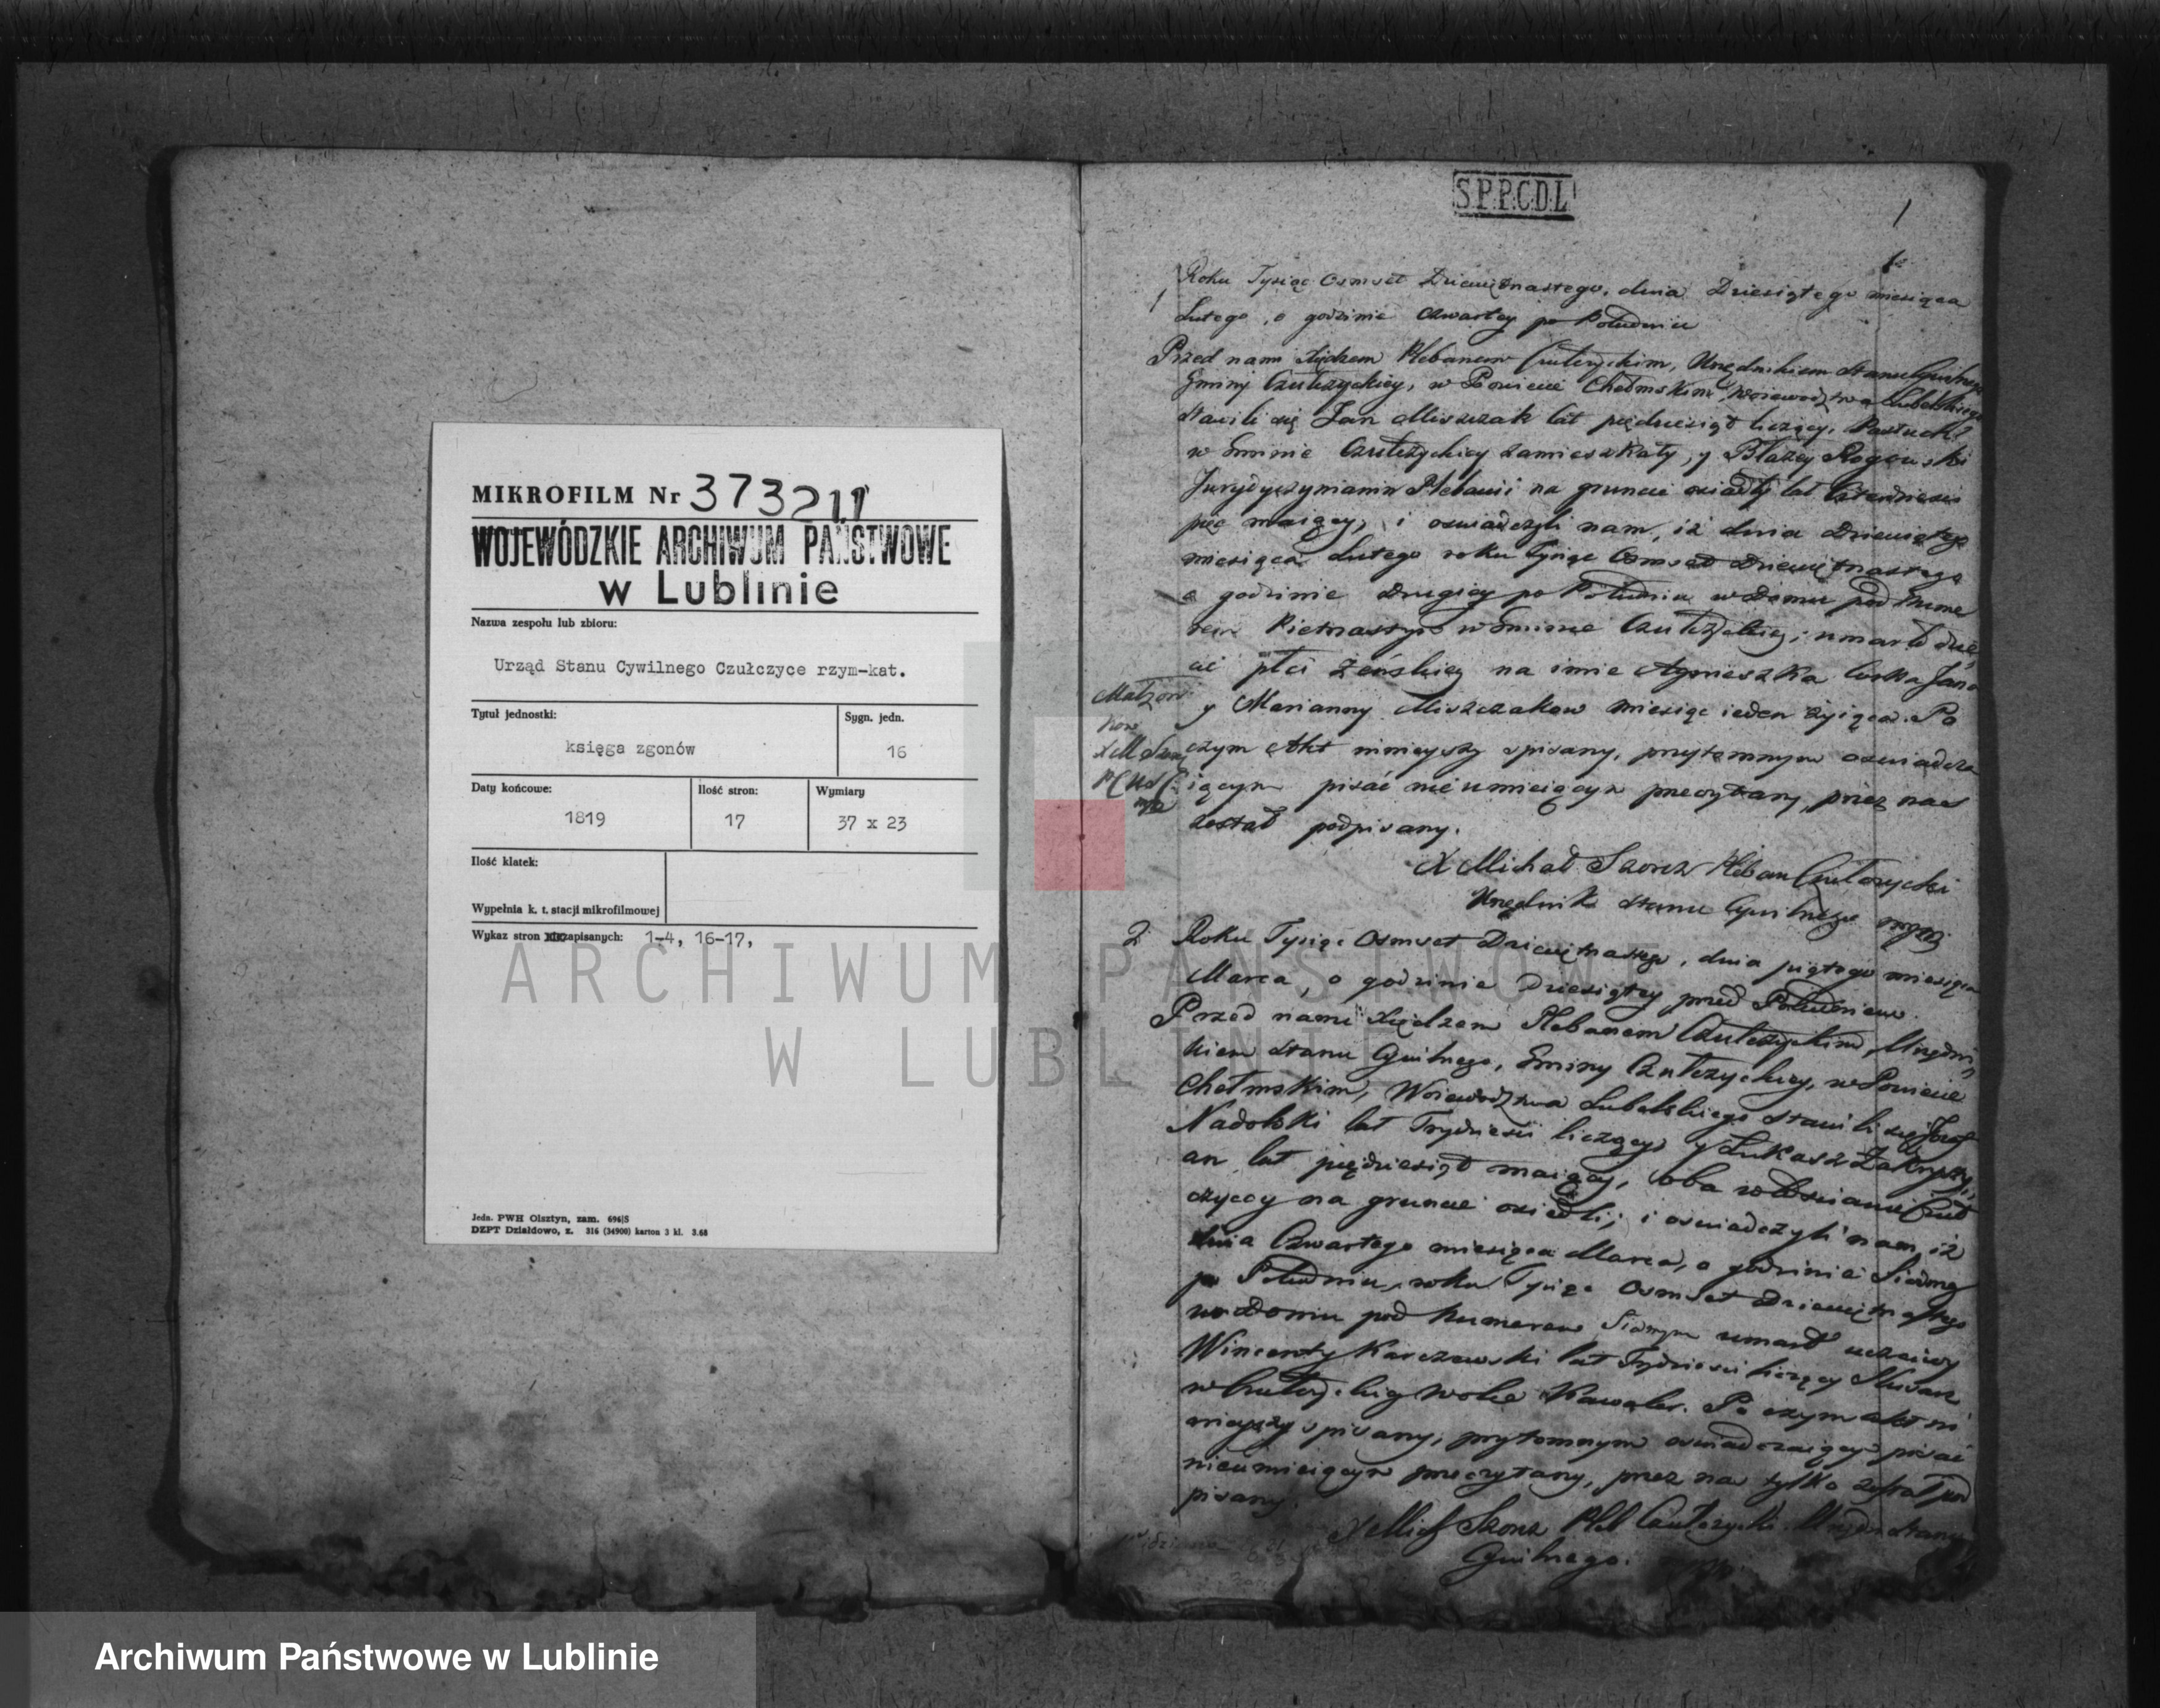 MIKROFILM Nr 373211
WOJEWÓDZKIE ARCHIWUM PAŃSTWOWE
w Lublinie
Nazwa zespołu lub zbioru:
Urząd Stanu Cywilnego Czułczyce rzym-kat.
Tytuł jednostki:
Sygn. jedn.
księga zgonów
16
Daty końcowe:
Ilość stron:
Wymiary
1819
17
37 x 23
Ilość klatek:
Wypełnia k. t. stacji mikrofilmowej
Wykaz stron zapisanych: 1-4, 16-17,
Jedn. PWH Olsztyn, zam. 696/S
DZPT Działdowo, z. 316 (34900) karton 3 kl. 3.68
S.P.P.C.D.L
1
1 Roku Tysiąc Osmset Dziewiętnastego, dnia Dziesiątego miesiąca
Lutego, o godzinie Czwartey po Południu
Przed nami Xiędzem Plebanem Czułczyckim, Urzędnikiem Stanu Cywilnego
Gminy Czułczyckiey, w Powiecie Chełmskim Woiewodztwa Lubelskiego
stawili się Jan Miszczak lat pięćdziesiąt liczący, Pastuch
w Gminie Czułczyckiey zamieszkały, y Błażey Rogowski
na gruncie osiadły lat Czterdzieści
pięć maiący, i oswiadczyli nam, iż dnia Dziewiątego
miesiąca Lutego roku Tysiąc Osmset Dziewiętnastego
o godzinie Drugiey po Południu w Domu pod Nume
rem Pietnastym w Gminie Czułczyckiey, umarło dzie
cie płci żeńskiey na imie Agnieszka Corka Jana
y Marianny Miszczakow miesiąc ieden żyiąca. Po
czym Akt ninieyszy spisany, przytomnym oswiadcza
iącym pisać nie umieiącym przeczytany, przez nas
został podpisany.
Małżon
kow
X Michał Szorcz Pleban Czułczycki
Urzędnik Stanu Cywilnego
2. Roku Tysiąc Osmset Dziewiętnastego, dnia piątego miesiąca
Marca, o godzinie Dziesiątey przed Południem.
Przed nami Xiędzem Plebanem Czułczyckim, Urzędni
kiem Stanu Cywilnego, Gminy Czułczyckiey, w Powiecie
Chełmskim, Woiewodztwa Lubelskiego stawili się Jozef
Nadolski lat Trzydzieści liczący, y Łukasz
an lat pięćdziesiąt maiący, oba włościanie Czuł
czyccy na gruncie osiedli; i oswiadczyli nam, iż
dnia Czwartego miesiąca Marca, o godzinie Siodmey
po Południu, roku Tysiąc Osmset Dziewiętnastego
w Domu pod Numerem Siodmym umarł uczciwy
Wincenty Karczewski lat Trzydzieści liczący Slusarz
w Czułczyckiey Woli Kawaler. Po czym Akt ni
nieyszy spisany, przytomnym oswiadczaiącym pisać
nieumieiącym przeczytany, przez nas tylko został pod
pisany.
X Mich Szorcz Pleb Czułczycki Urzędn Stanu
Cywilnego.
ARCHIWUM PAŃSTWOWE
W LUBLINIE
Archiwum Państwowe w Lublinie